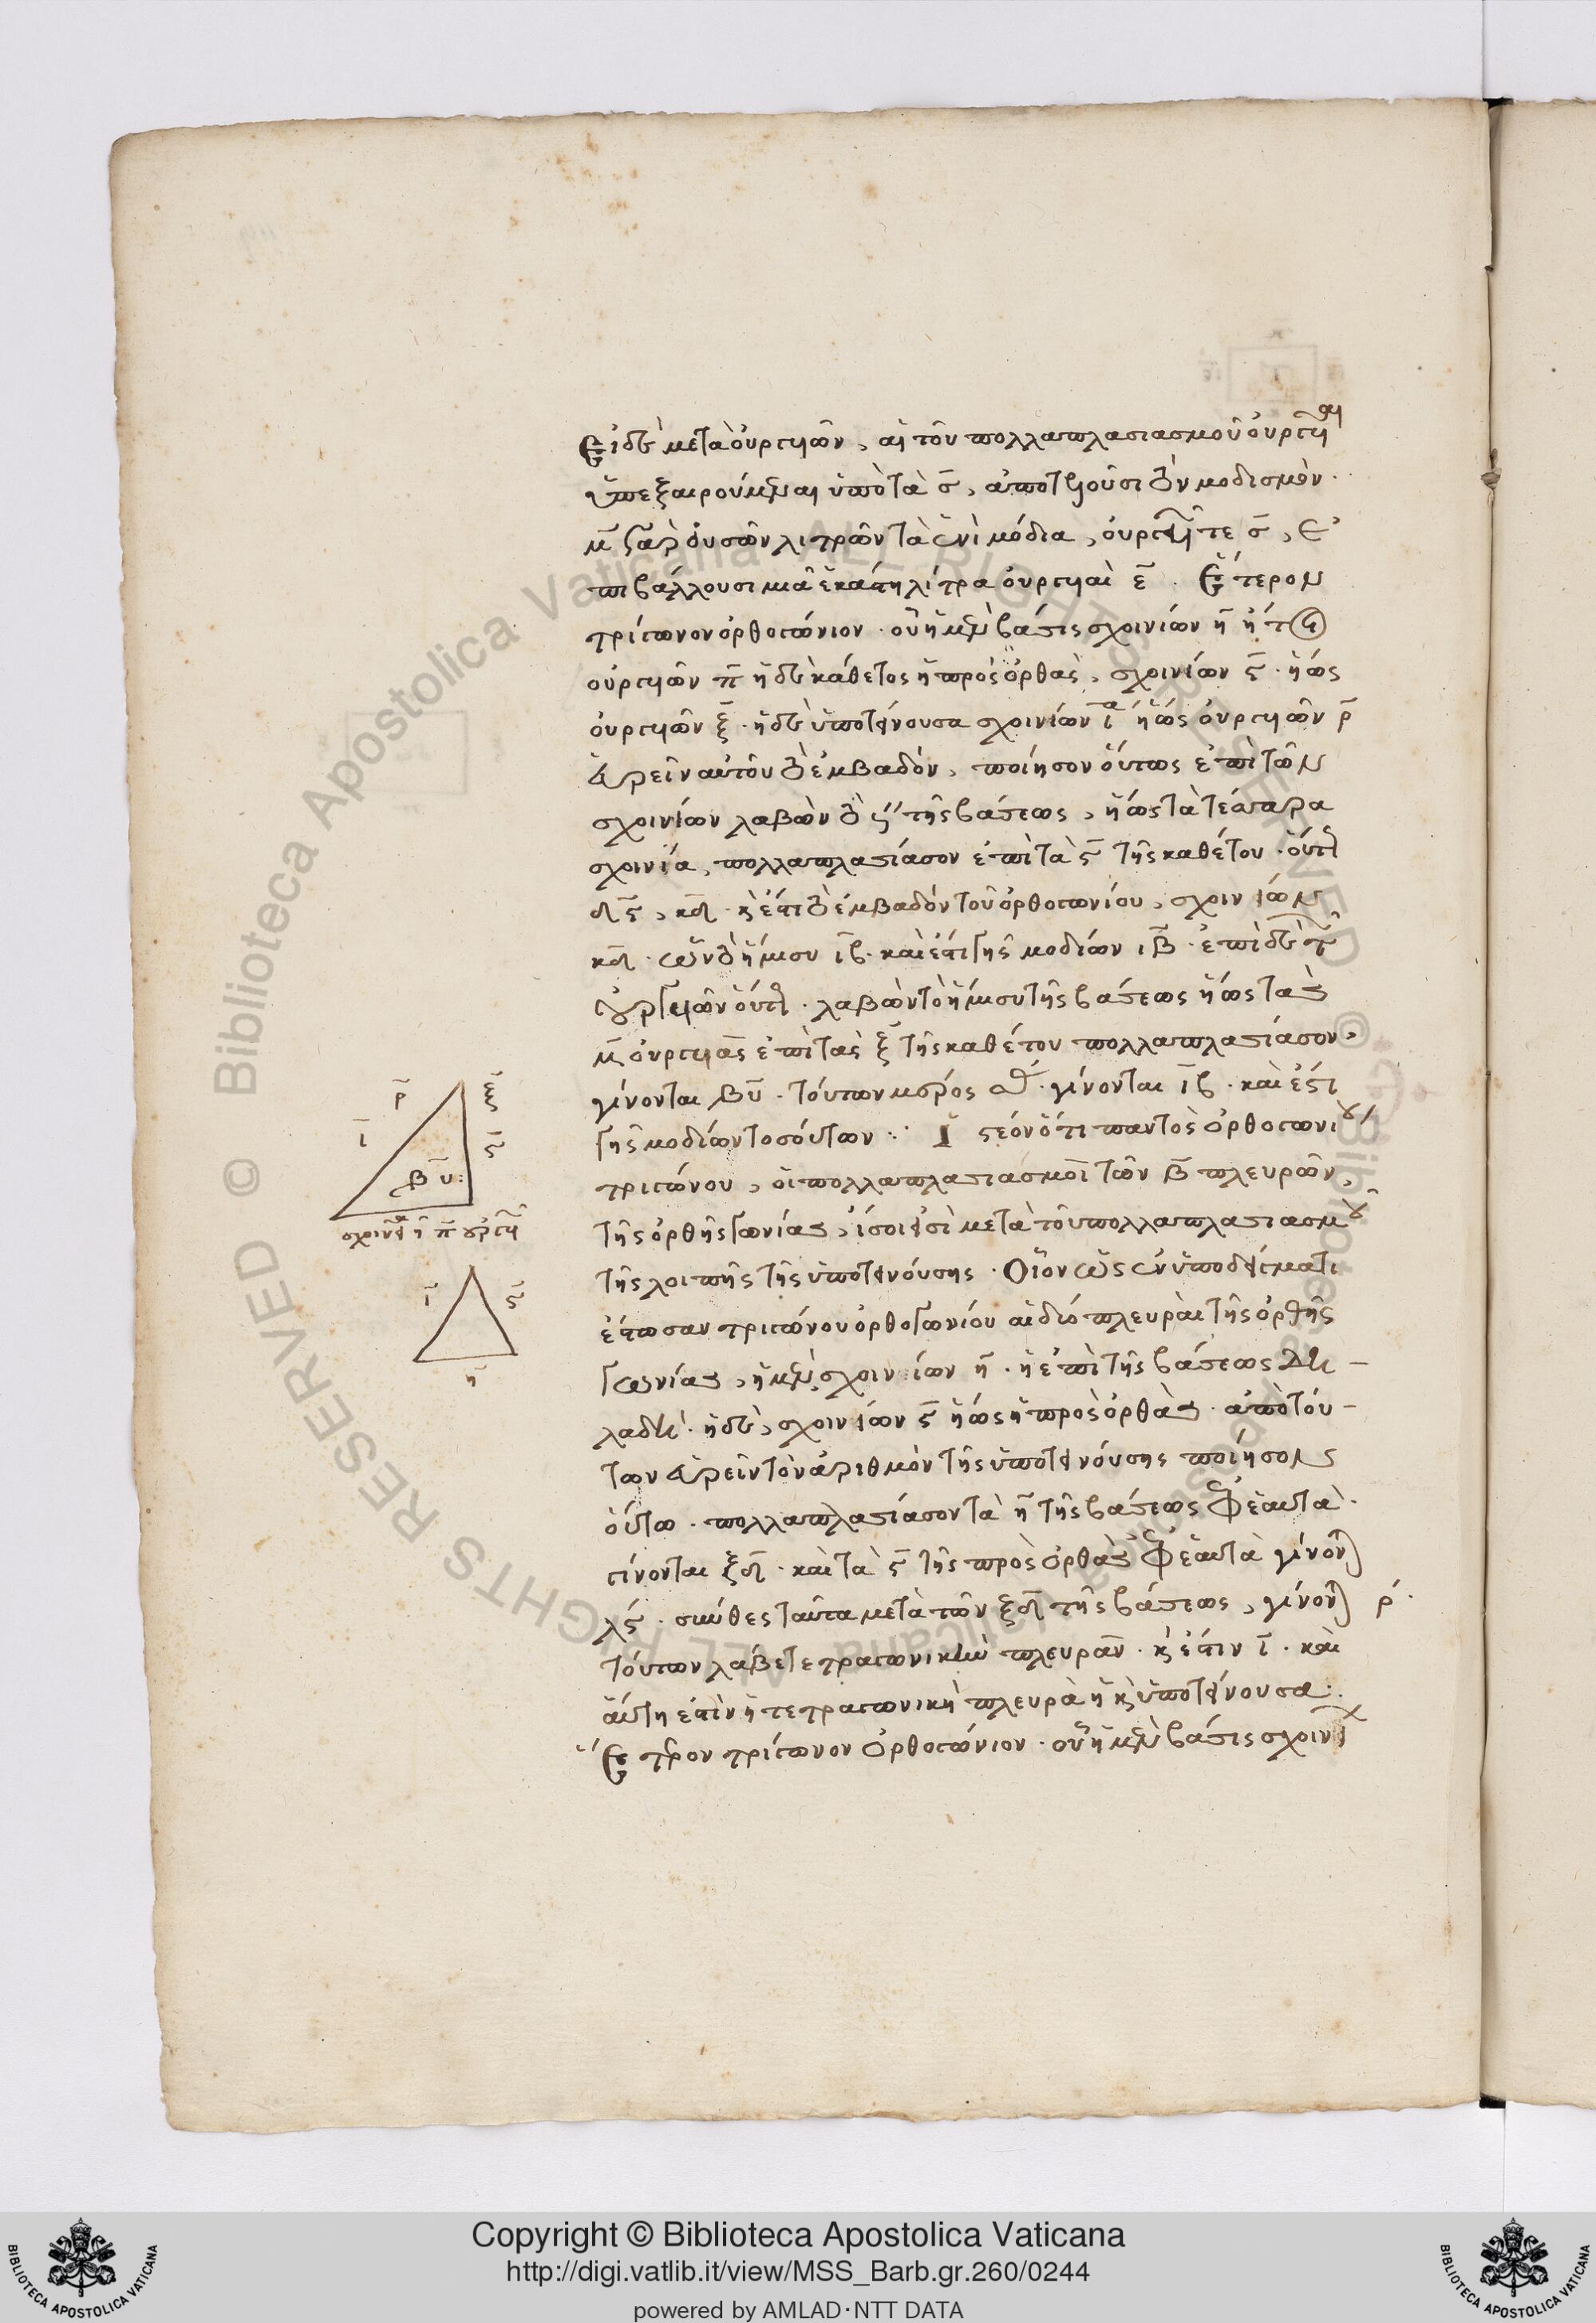 Εἰ δὲ μετὰ ὀυργιῶν, αἱ τοῦ πολλαπλασιασμοῦ ὀυργυιαὶ
ὑπεξαιρούμεναι ὑπὸ τὰ σ̅, ἀποτελοῦσι τὸν μοδισμόν.
μ̅ γὰρ ὀυσῶν λιτρῶν τῶ ἑνὶ μόδίω, ὀυργυιῶν τε σ̅, ἐ
πιβάλλουσι μιᾶ ἑκάστη λίτρα ὀυργυιαὶ ε̅. Ἕτερον
τρίγωνον ὀρθογώνιον. οὗ ἡ μὲν βάσις σχοινίων η̅ ἤτοι
ὀυργυιῶν π̅ ἡ δὲ κάθετος ἡ πρὸς ὀρθὰς, σχοινίων ϛ̅. ἤως
ὀυργυιῶν ξ̅. ἡ δὲ ὑποτείνουσα σχοινίων ι̅ ἤως ὀυργυιῶν ρ̅
εὑρεῖν αὐτοῦ τὸ ἐμβαδόν, ποίησον ὅυτως ἐπὶ τῶν
σχοινίων λαβὼν τὸ ϛ´´ τῆς βάσεως, ἤως τὰ τέσσαρα
σχοινία, πολλαπλασίασον ἐπὶ τὰ ϛ̅ τῆς καθέτου. ὅυτως
δ̅ ϛ̅, κδ̅. κὲ ἔστι τὸ ἐμβαδόν τοῦ ὀρθογωνίου, σχοινίων
κδ̅. ὧν τὸ ἥμισυ ι̅β. καὶ ἔστι γῆς μοδίων ιβ̅. ἐπὶ δὲ τῶν
ὀυργυιῶν ὅυτως. λαβὼν τὸ ἥμισυ τῆς βάσεως ἤως τὰς
μ̅ ὀυργυιὰς ἐπὶ τὰς ξ̅ τῆς καθέτου πολλαπλασίασον,
γίνονται βυ̅. τόυτων μέρος σ̅. γίνονται ι̅β. καὶ ἐστι
γῆς μοδίων τοσόυτων :· Ἰστέον ὅτι παντὸς ὀρθογωνίου
τριγώνου, οἱ πολλαπλασιασμοὶ τῶν β̅ πλευρῶν,
τῆς ὀρθῆς γωνίας, ἴσοι εἰσὶ μετὰ τοῦ πολλαπλασιασμοῦ
τῆς λοιπῆς τῆς ὑποτεινόυσης. Οἷον ὡς ἐν ὑποδείγματι
ἔστωσαν τριγώνου ὀρθογωνίου αἱ δύο πλευραὶ τῆς ὀρθῆς
γωνίας, ἡ μὲν, σχοινίων η̅. ἡ ἐπὶ τῆς βάσεως δη-
λαδή. ἡ δὲ, σχοινίων ϛ̅ ἤως ἡ πρὸς ὀρθὰς. ἀπὸ τόυ-
των εὑρεῖν τὸν ἀριθμὸν τῆς ὑποτεινόυσης ποίησον
ὅυτω. πολλαπλασίασον τὰ η̅ τῆς βάσεως ἐφ ἑαυτὰ.
γίνονται ξδ̅. καὶ τὰ ϛ̅ τῆς πρὸς ὀρθὰς ἐφ ἑαυτὰ γίνονται
λϛ. σύνθες ταῦτα μετὰ τῶν ξδ̅ τῆς βάσεως, γίνονται ρ´.
τόυτων λάβε τετραγωνικὴν πλευρὰν. κὲ ἔστιν ι̅. καὶ
ἄυτη ἐστὶν ἡ τετραγωνικὴ πλευρὰ ἡ κὲ ὑποτείνουσα.
Ἕτερον τρίγωνον ὀρθογώνιον. οὗ ἡ μὲν βάσις σχοινί
ρ̅
ξ̅
ι̅
ϛ̅
βυ̅:
σχοινία η̅ π̅ ὀυργυιῶν
ι̅
ϛ̅
η̅
BIBLIOTECA APOSTOLICA VATICANA
Copyright © Biblioteca Apostolica Vaticana
http://digi.vatlib.it/view/MSS_Barb.gr.260/0244
powered by AMLAD·NTT DATA
BIBLIOTECA APOSTOLICA VATICANA
© Biblioteca Apostolica Vaticana ALL RIGHTS RESERVED